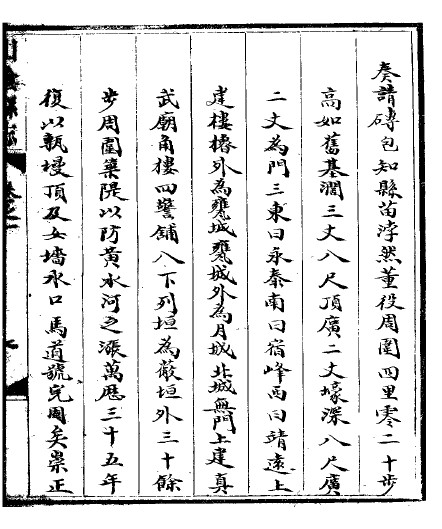 奏請磚包知縣苗浡然董役周圍四里零二十步
高如舊基濶三丈八尺頂廣二丈壕深八尺廣
二丈為門三東曰永泰南曰宿峰西曰靖遠上
建樓櫓外為甕城甕城外為月城北城無門上建真
武廟角樓四警鋪八下列垣為蔽垣外三十餘
步周圍築隄以防黃水河之漲萬歷三十五年
復以甎墁頂及女墻水口馬道號完固矣崇正